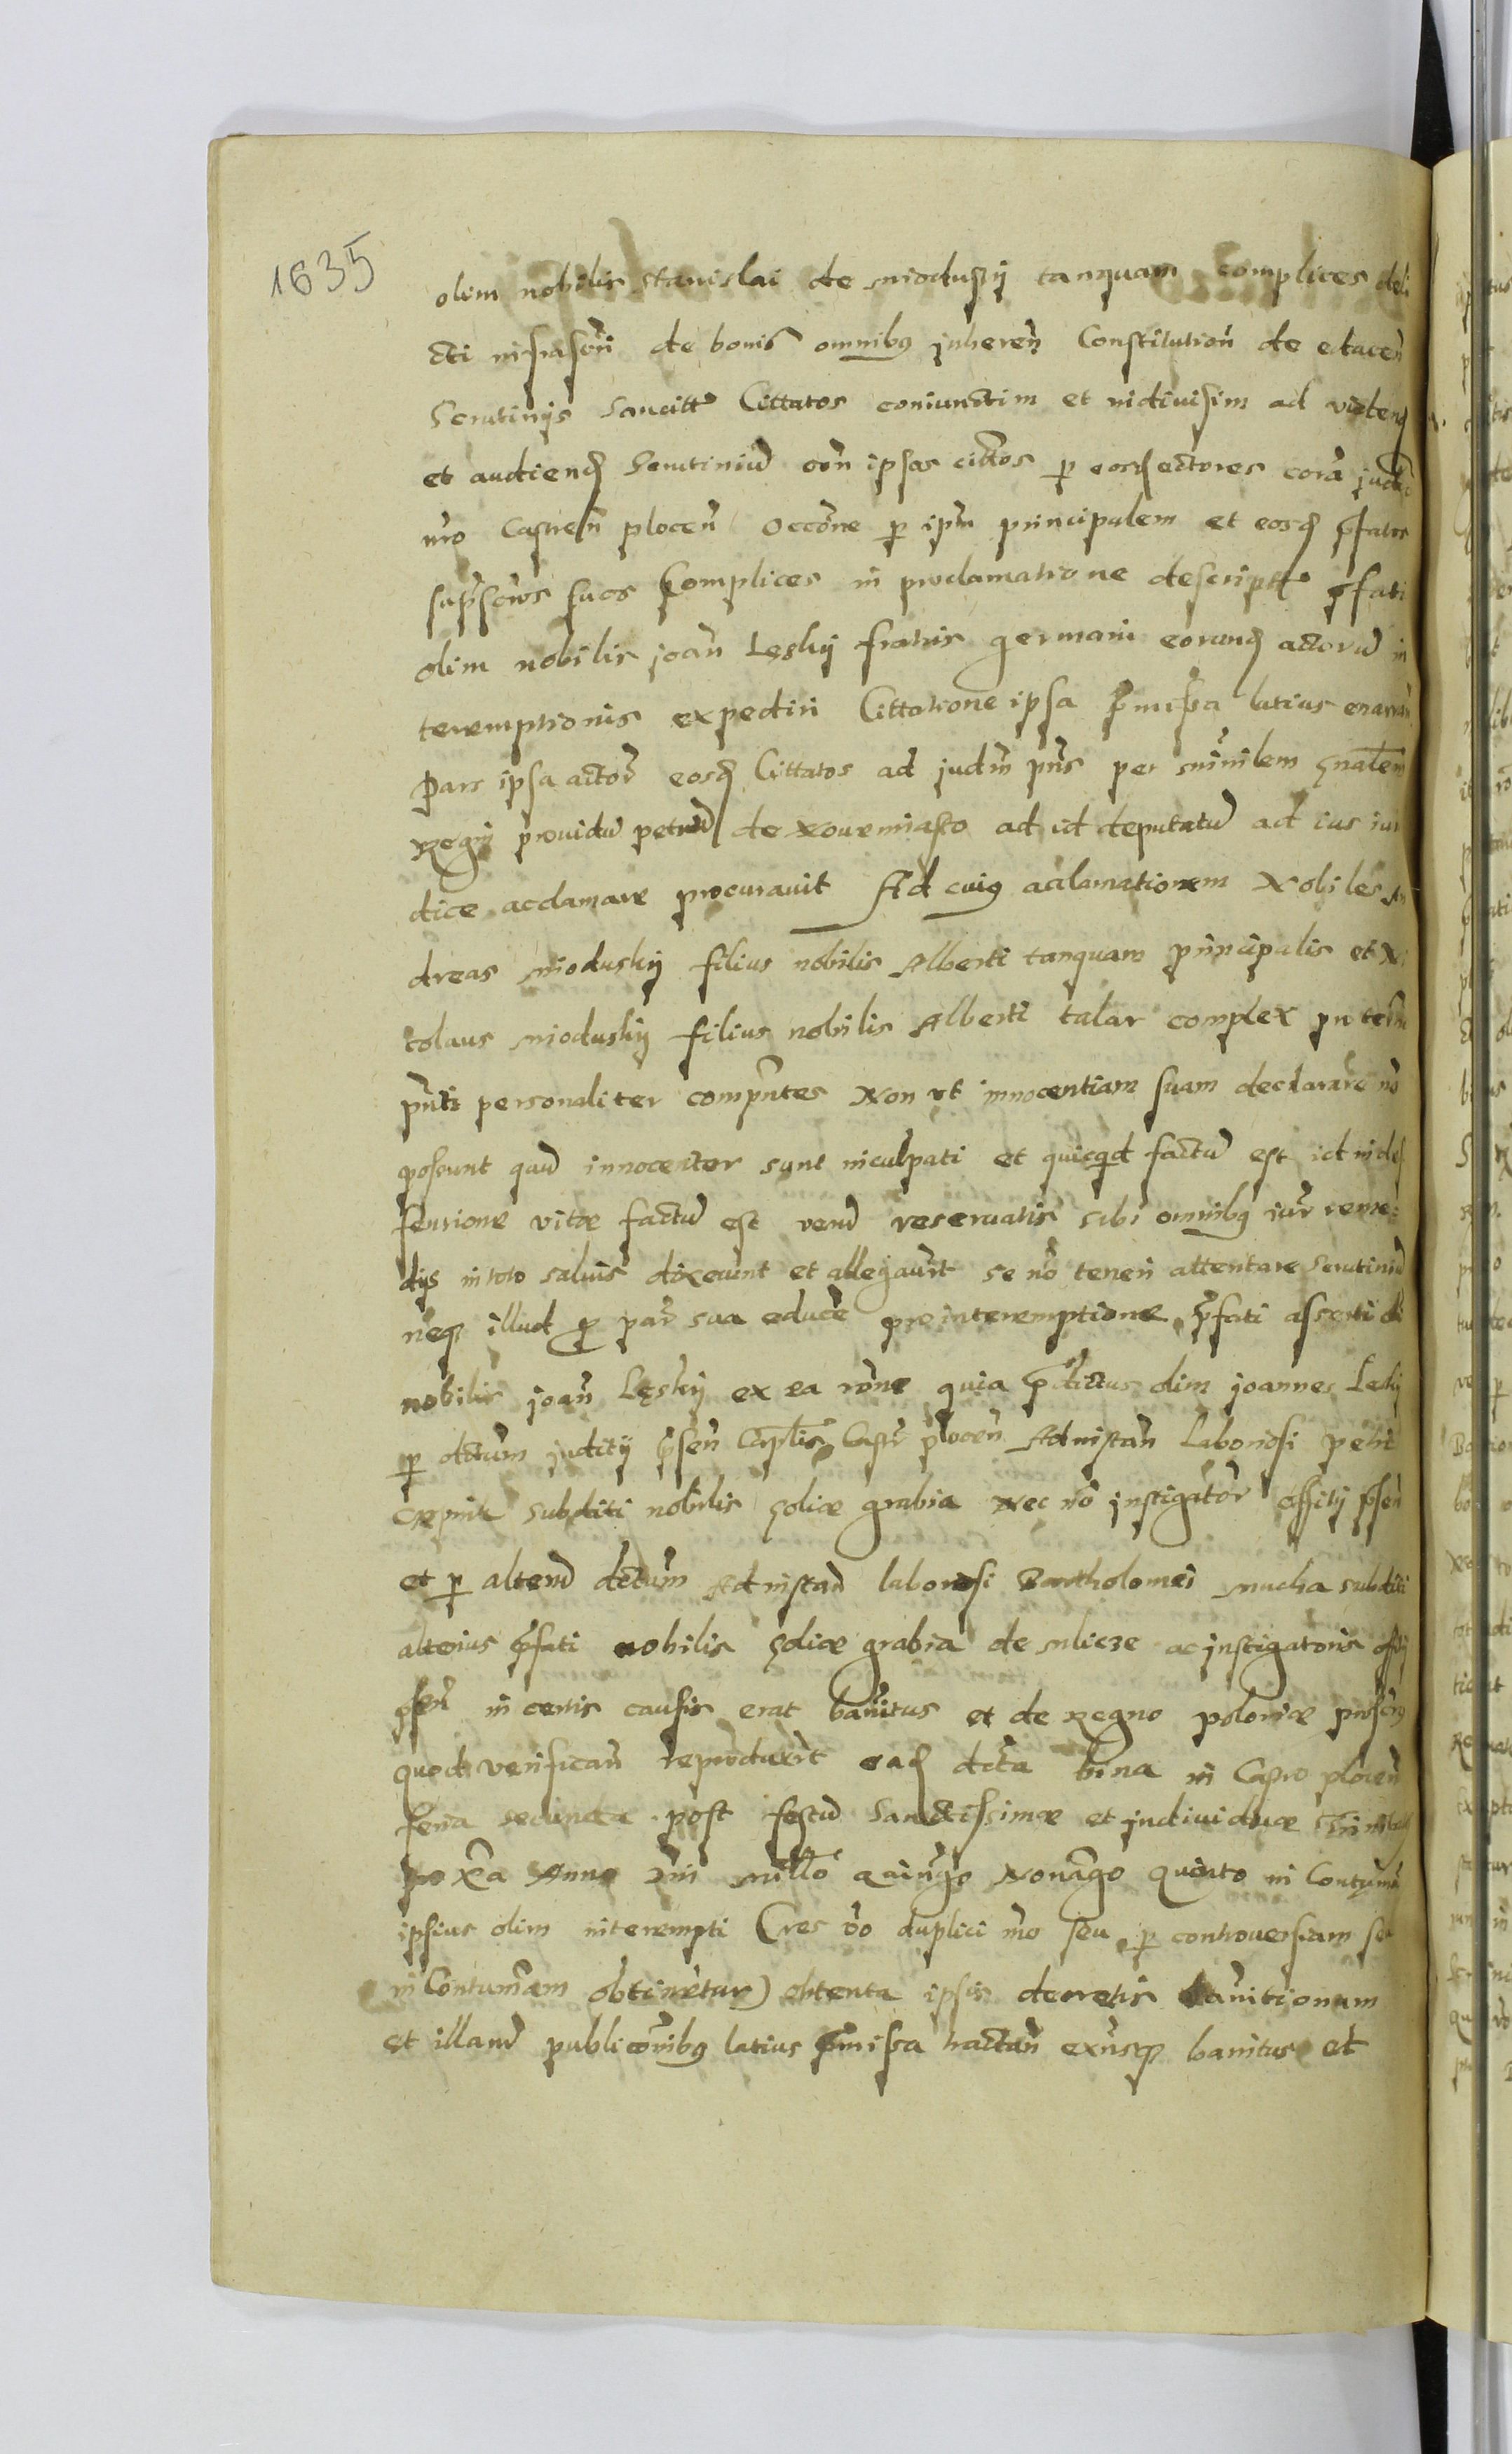 1635
olim nobilis Stanislai de Miodusij tanquam complices deli
cti infrascri de bonis omnibus inheren Constitution de educen
Scrutinijs Sancitt Cittatos coniunctim et indiuisim ad videnđ
et audienđ Scrutiniu con ipsos cittos p eosđ actores cora judic
nro Castren plocen occone p ipm principalem et eosđ pfatos
supscros suos Complices in proclamatione descriptt pfati
olim nobilis joan Lęskij fratris germani eorunđ actoru in
teremptionis expediri Cittatione ipsa pmissa latius enarran
Pars ipsa actor eosđ Cittatos ad judm pns per minrlem gnalem
Regni prouidu petru de Nouemiasto ad id deputatu ad ius iuri
dice acclamare procurauit Ad cuius acclamationem Nobiles An
dreas Mioduskij filius nobilis Alberti tanquam principalis et Ni
colaus Mioduskij filius nobilis Alberti talar complex in termi
pnti personaliter compntes Non vt innocentiam suam declarare no
possunt qua innocenter sunt inculpati et quicqd factu est id in def
fensione vitae factu est veru reseruatis sibi omnibus iur reme=
dijs in toto saluis dixerunt et allegaurt se no teneri attentare Scrutiniu
neq illud p par sua educe pro interemptione pfati asserti oli
nobilis joan Lęskij ex ea rone quia pdictus olim joannes Leskij
p dctum judicij psen Caplis Castr plocen Ad instan Laboriosi petri
subditi nobilis Zoliae grabia Nec no instigator officij psen
et p alteru dctum Ad instan laboriosi Bartholomei Mucha subditi
alterius pfati nobilis Zoliae grabia de ac instigatoris officij
psen in certis causis erat banitus et de Regno poloniae
quod verifican reproduxit eađ dcta bina in Castro plocen
feria secunda post festu Sanctissimae et indiuiduae Trinitatis
proxa Anno Dni Millo quingo Nonago quinto in Contuma
ipsius olim interempti (res vo duplici mo seu p controuersiam seu
in Contumam obtinetur) obtenta ipsis decretis banitionum
et illaru publiconibus latius pmissa tractan exnsq banitus et